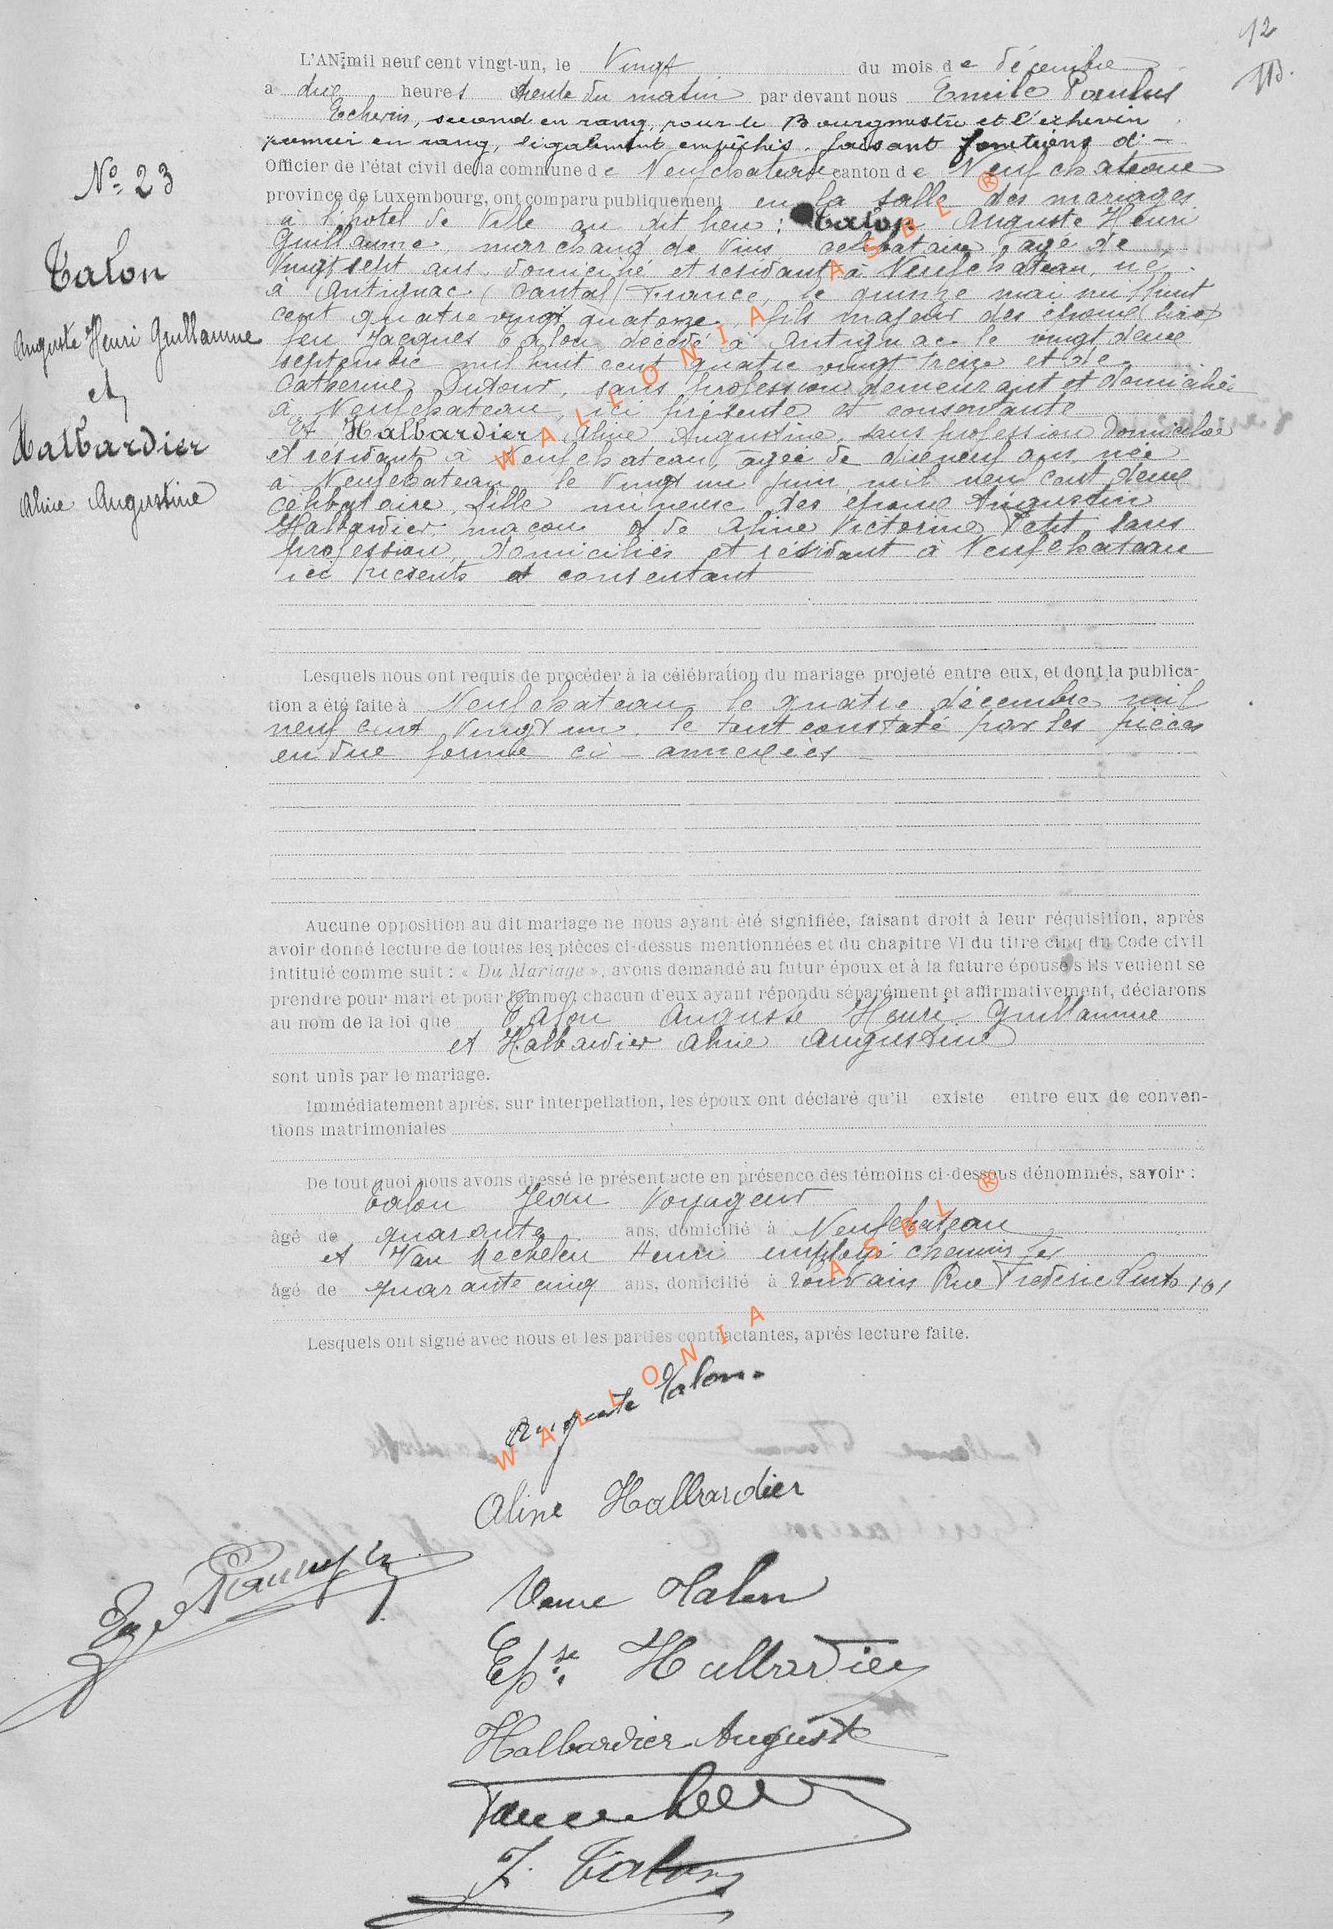 12
L'AN mil neuf cent vingt-un, le Vingt du mois de décembre
a dix heures trente du matin par devant nous Emile Paulus
Echevin, second en rang, pour le Bourgmestre et l'echevin
premier en rang, légalement empêchés, faisant fonctions d'
Officier de l'état civil de la commune de Neufchateau canton de Neufchateau
province de Luxembourg, ont comparu publiquement en la salle des mariages
à l'hotel de Ville au dit lieu : Talon Auguste Henri
Guillaume marchand de vins celibataire, agé de
Vingt sept ans, domicilié et résidant à Neufchateau, né
à Antignac (Cantal) France, le quinze mai mil huit
cent quatre vingt quatorze, fils majeur des époux
feu Jacques Talon décédé à Antignac le vingt deux
septembre mil huit cent quatre vingt treize et de
Catherine Duteur, sans profession demeurant et domiciliée
à Neufchateau, ici présente et consentante
Et Halbardier Aline Augustine, sans profession domiciliée
et résidant à Neufchateau, agée de dixneuf ans, née
à Neufchateau le vingt un juin mil neuf cent deux
célibataire, fille mineure des époux Augustin
Halbardier maçon et de Aline Victorine Petit sans
profession, domiciliés et résidant à Neufchateau
ici présents et consentant
Nº 23
Talon
Auguste Henri Guillaume
et
Halbardier
Aline Augustine
Lesquels nous ont requis de procéder à la célébration du mariage projeté entre eux, et dont la publica-
tion a été faite à Neufchateau le quatre décembre mil
neuf cent vingt un le tout constaté par les pièces
en due forme ci-annexées
Aucune opposition au dit mariage ne nous ayant été signifiée, faisant droit à leur réquisition, après
avoir donné lecture de toutes les pièces ci-dessus mentionnées et du chapitre VI du titre cinq du Code civil
intitulé comme suit : « Du Mariage », avons demandé au futur époux et à la future épouse s'ils veulent se
prendre pour mari et pour femme; chacun d'eux ayant répondu séparément et affirmativement, déclarons
au nom de la loi que Talon Auguste Henri Guillaume
et Halbardier Aline Augustine
sont unis par le mariage.
Immédiatement après, sur interpellation, les époux ont déclaré qu'il existe entre eux de conven-
tions matrimoniales
De tout quoi nous avons dressé le présent acte en présence des témoins ci-dessous dénommés, savoir :
Talon Jean Voyageur
âgé de quarante ans, domicilié à Neufchateau
et Van Mechelen Henri employé chemins fer
âgé de quarante cinq ans, domicilié à Louvain Rue Frédéric Lints 101
Lesquels ont signé avec nous et les parties contractantes, après lecture faite.
Auguste Talon
Aline Halbardier
Veuve Talon
Epse Halbardier
Halbardier Auguste
J. Talon
WALLONIA ASBL ®
WALLONIA ASBL ®